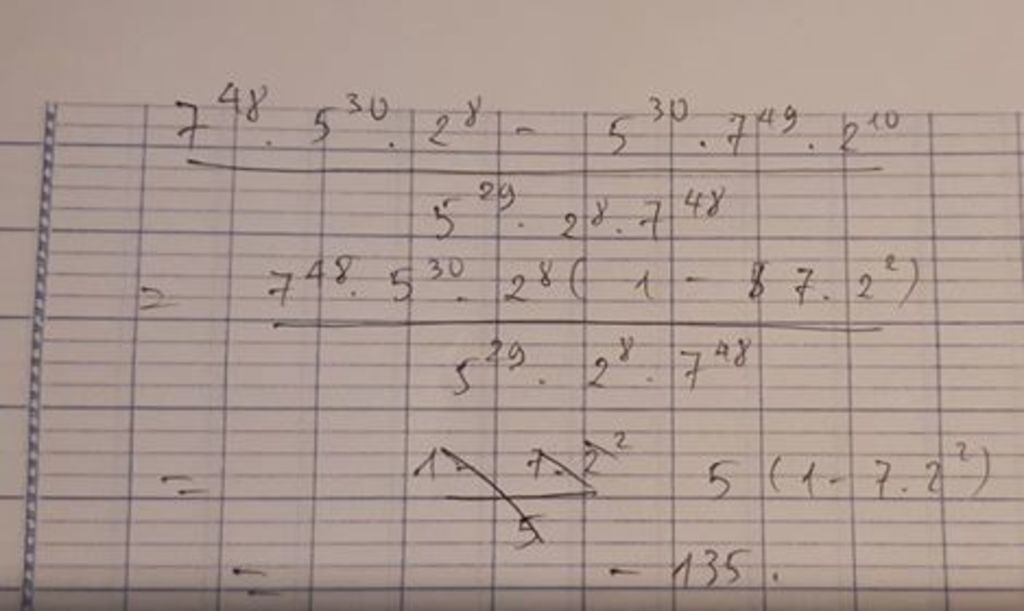 7^48 . 5^30 . 2^8 - 5^30 . 7^49 . 2^10
5^29 . 2^8 . 7^48
= 7^48 . 5^30 . 2^8 ( 1 - 7 . 2^2 )
5^29 . 2^8 . 7^48
= 1 - 7 . 2^2 5 ( 1 - 7 . 2^2 )
5
= - 135 .